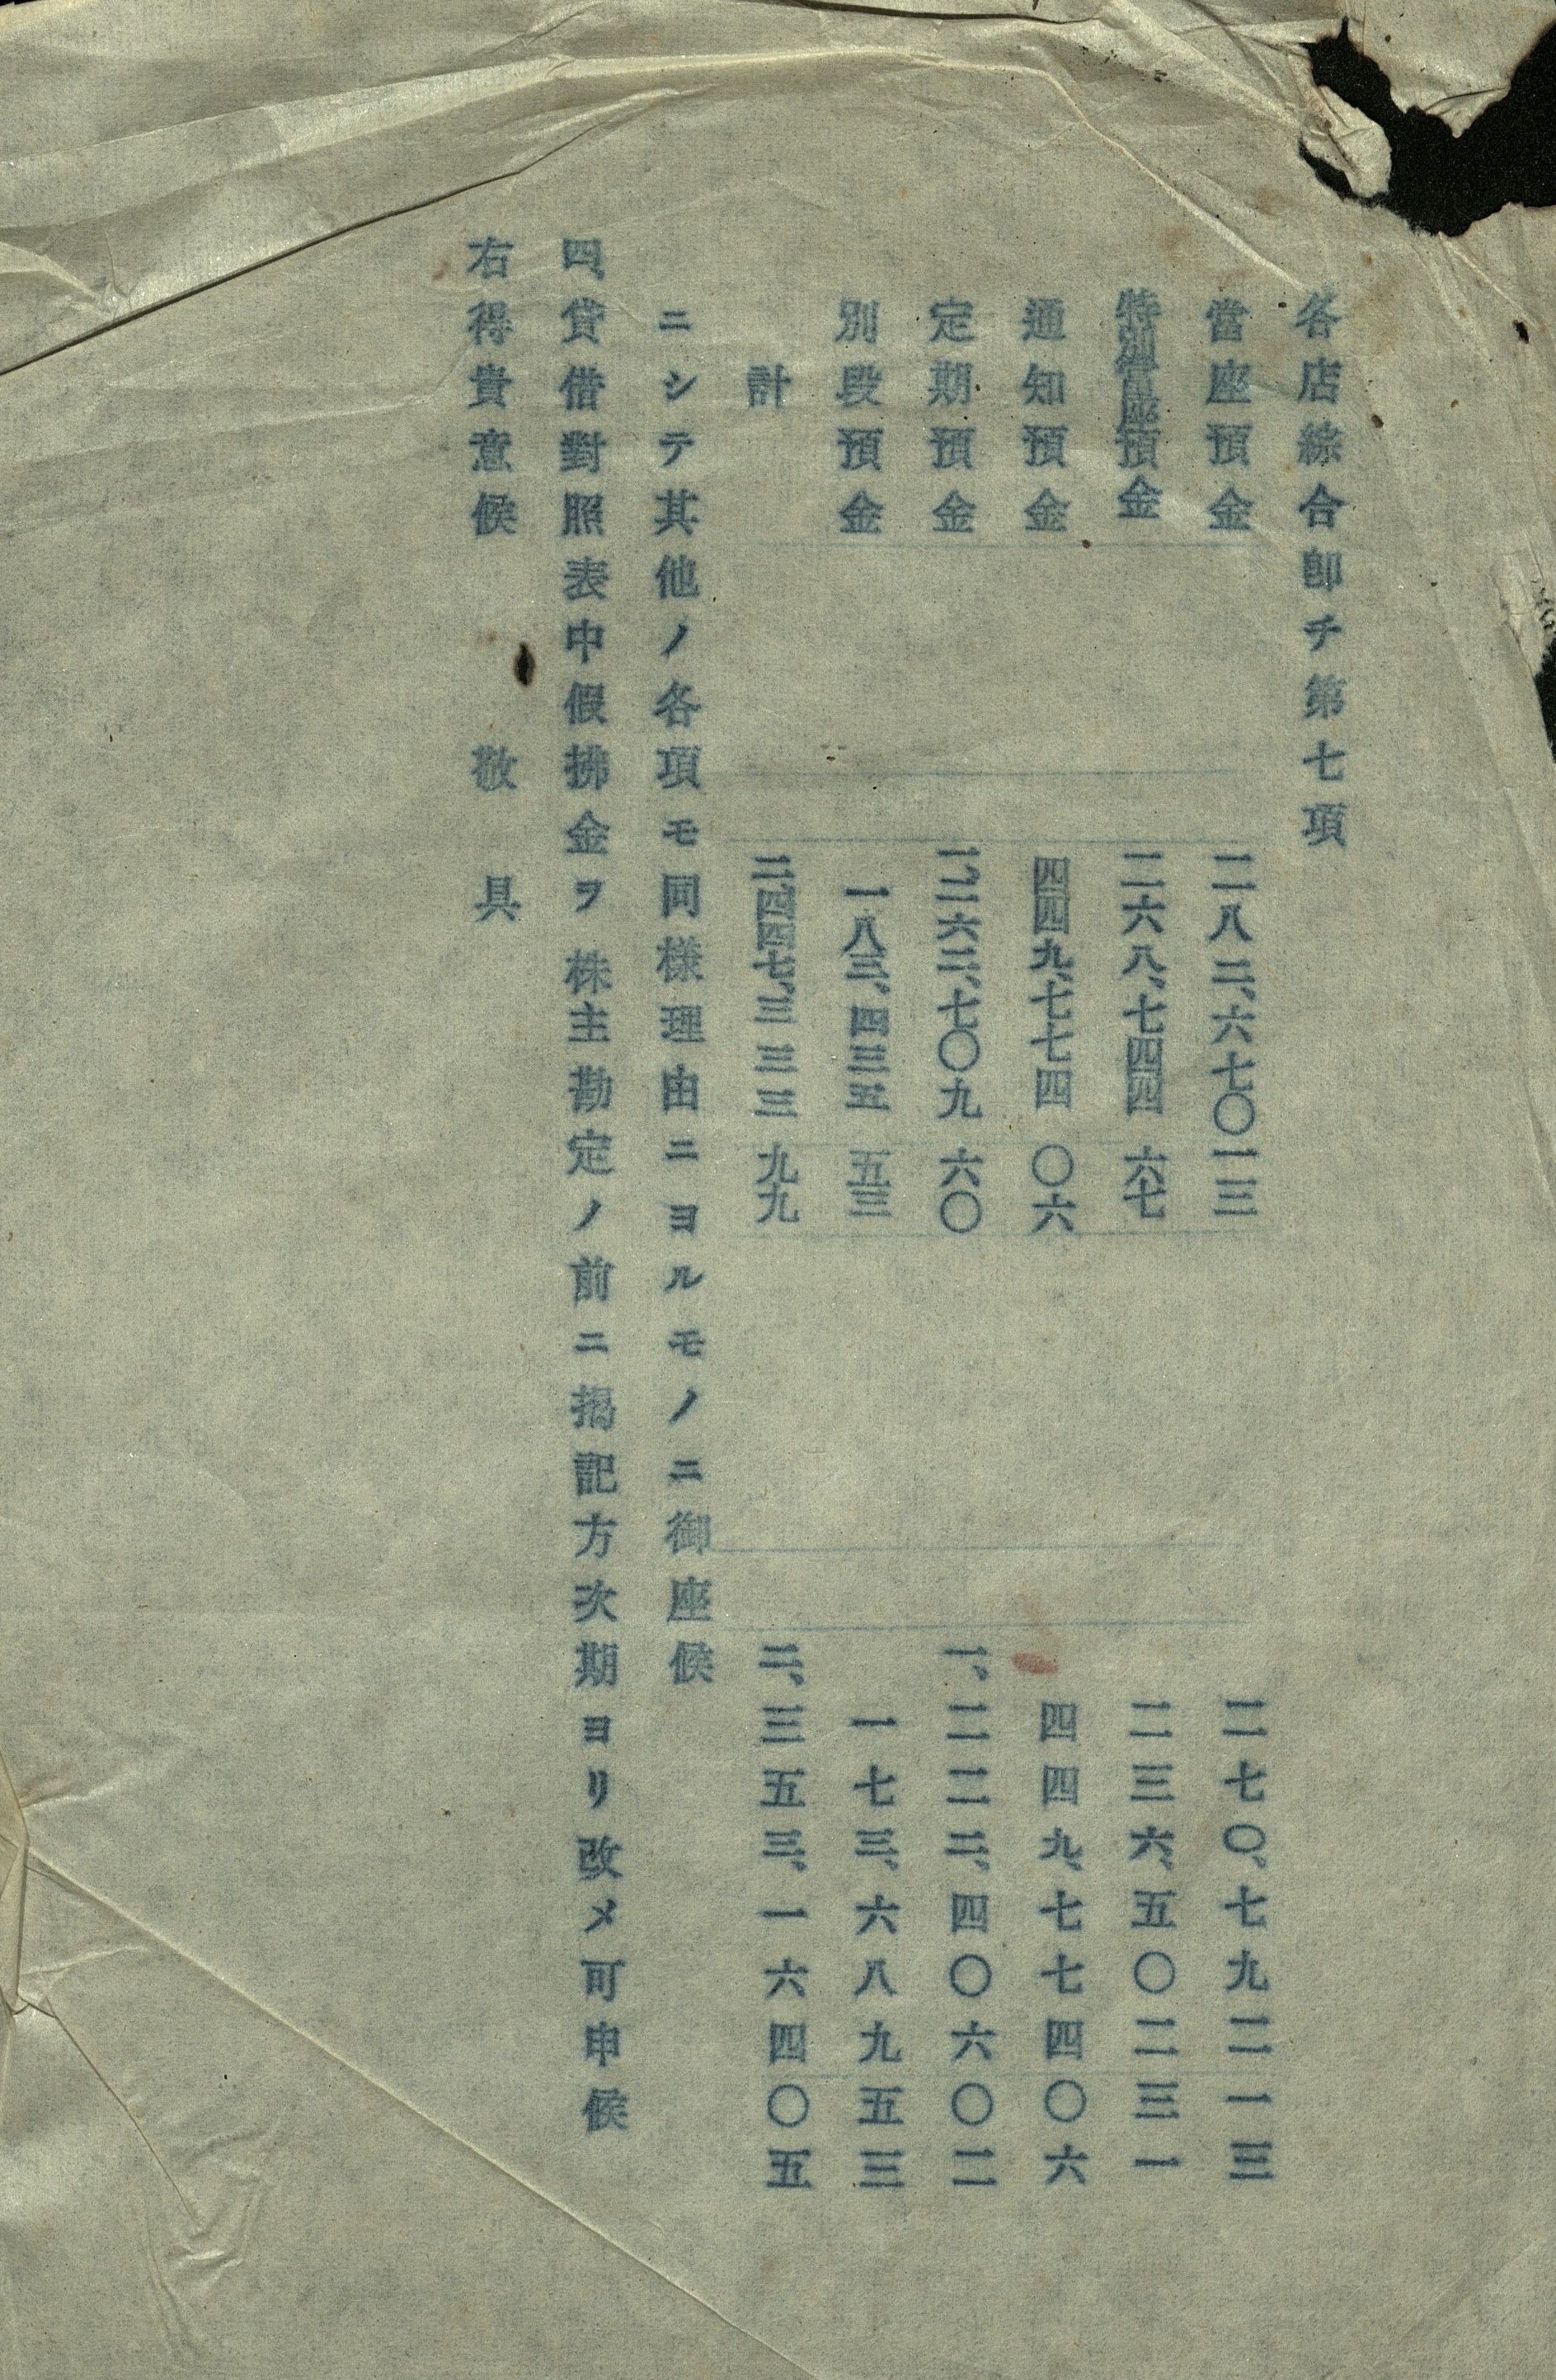 各店綜合卽チ第七項
當座預金 二八二、六七〇 一三 二七〇、七九二 一三
特別當座預金 二六八、七四四 六七 二三六、五〇二 三一
通知預金 四四九、七七四 〇六 四四九、七七四 〇六
定期預金 一、二六二、七〇九 六〇 一、二二二、四〇六 〇二
別段預金 一八三、四三五 五三 一七三、六八九 五三
計 二四四七、三三三 九九 二、三五三、一六四 〇五
ニシテ其他ノ各項モ同樣理由ニヨルモノニ御座候
四、貸借對照表中假拂金ヲ株主勘定ノ前ニ揭記方次期ヨリ改メ可申候
右得貴意候 敬具